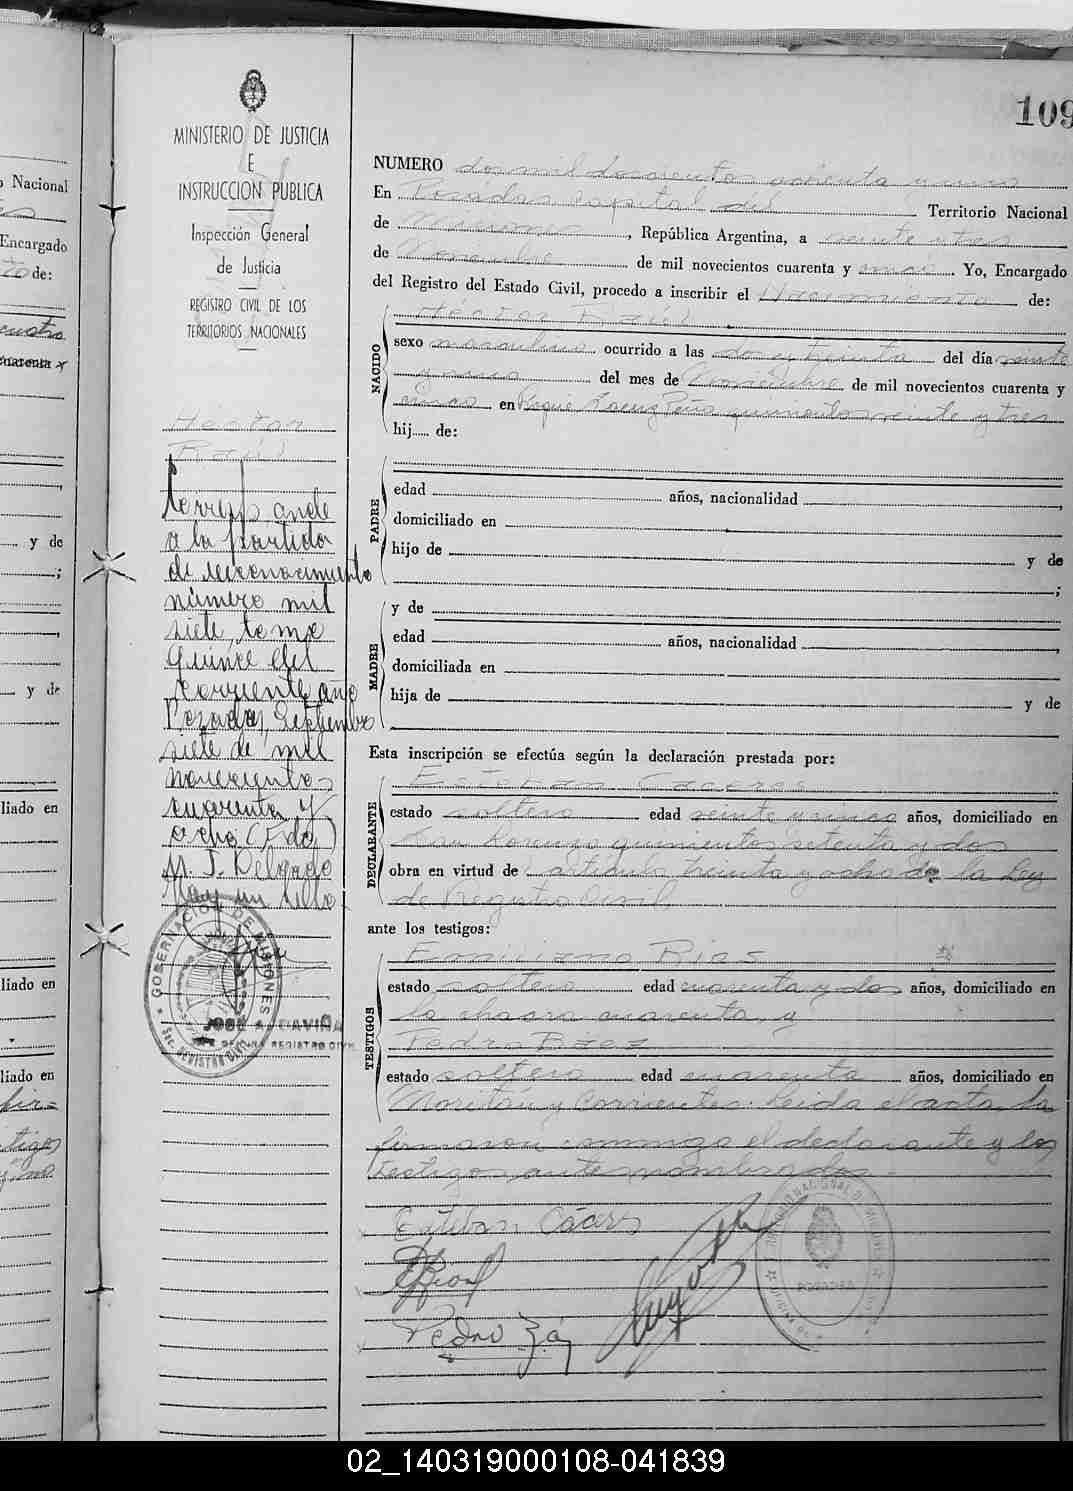 109
MINISTERIO DE JUSTICIA
E
INSTRUCCION PUBLICA
Inspección General
de Justicia
REGISTRO CIVIL DE LOS
TERRITORIOS NACIONALES
Héctor
Raúl
Corresponde
a la partida
de reconocimiento
número mil
siete, tomo
quince del
corriente año
Posadas, Septiembre
siete de mil
novecientos
cuarenta y
ocho (Fdo)
M. J. Delgado
Hay un sello.
GOBERNACION DE MISIONES
JOSE A. DAVIÑA
REGISTRO CIVIL
NUMERO dos mil doscientos ochenta y uno
En Posadas capital del Territorio Nacional
de Misiones, República Argentina, a veinte y tres
de Noviembre de mil novecientos cuarenta y cinco Yo, Encargado
del Registro del Estado Civil, procedo a inscribir el Nacimiento de:
NACIDO
Héctor Raúl
sexo masculino ocurrido a las dos y treinta del día veinte
y uno del mes de Noviembre de mil novecientos cuarenta y
cinco en Roque Saenz Peña quinientos veinte y tres
hij..... de:
PADRE
edad años, nacionalidad
domiciliado en
hijo de y de
;
MADRE
y de
edad años, nacionalidad
domiciliada en
hija de y de
Esta inscripción se efectúa según la declaración prestada por:
DECLARANTE
Esteban Caceres
estado soltero edad veinte y cinco años, domiciliado en
San Lorenzo quinientos setenta y dos
obra en virtud de artículo treinta y ocho de la Ley
de Registro Civil
ante los testigos:
TESTIGOS
Emiliano Rios
estado soltero edad cuarenta y dos años, domiciliado en
la chacra cuarenta, y
Pedro Báez
estado soltero edad cuarenta años, domiciliado en
Moritan y Corrientes. Leida el acta, la
firmaron conmigo el declarante y los
testigos antes nombrados
Esteban Cáceres
Pedro
POSADAS
o Nacional
Encargado
de:
y de
;
y de
liado en
liado en
liado en
02_140319000108-041839